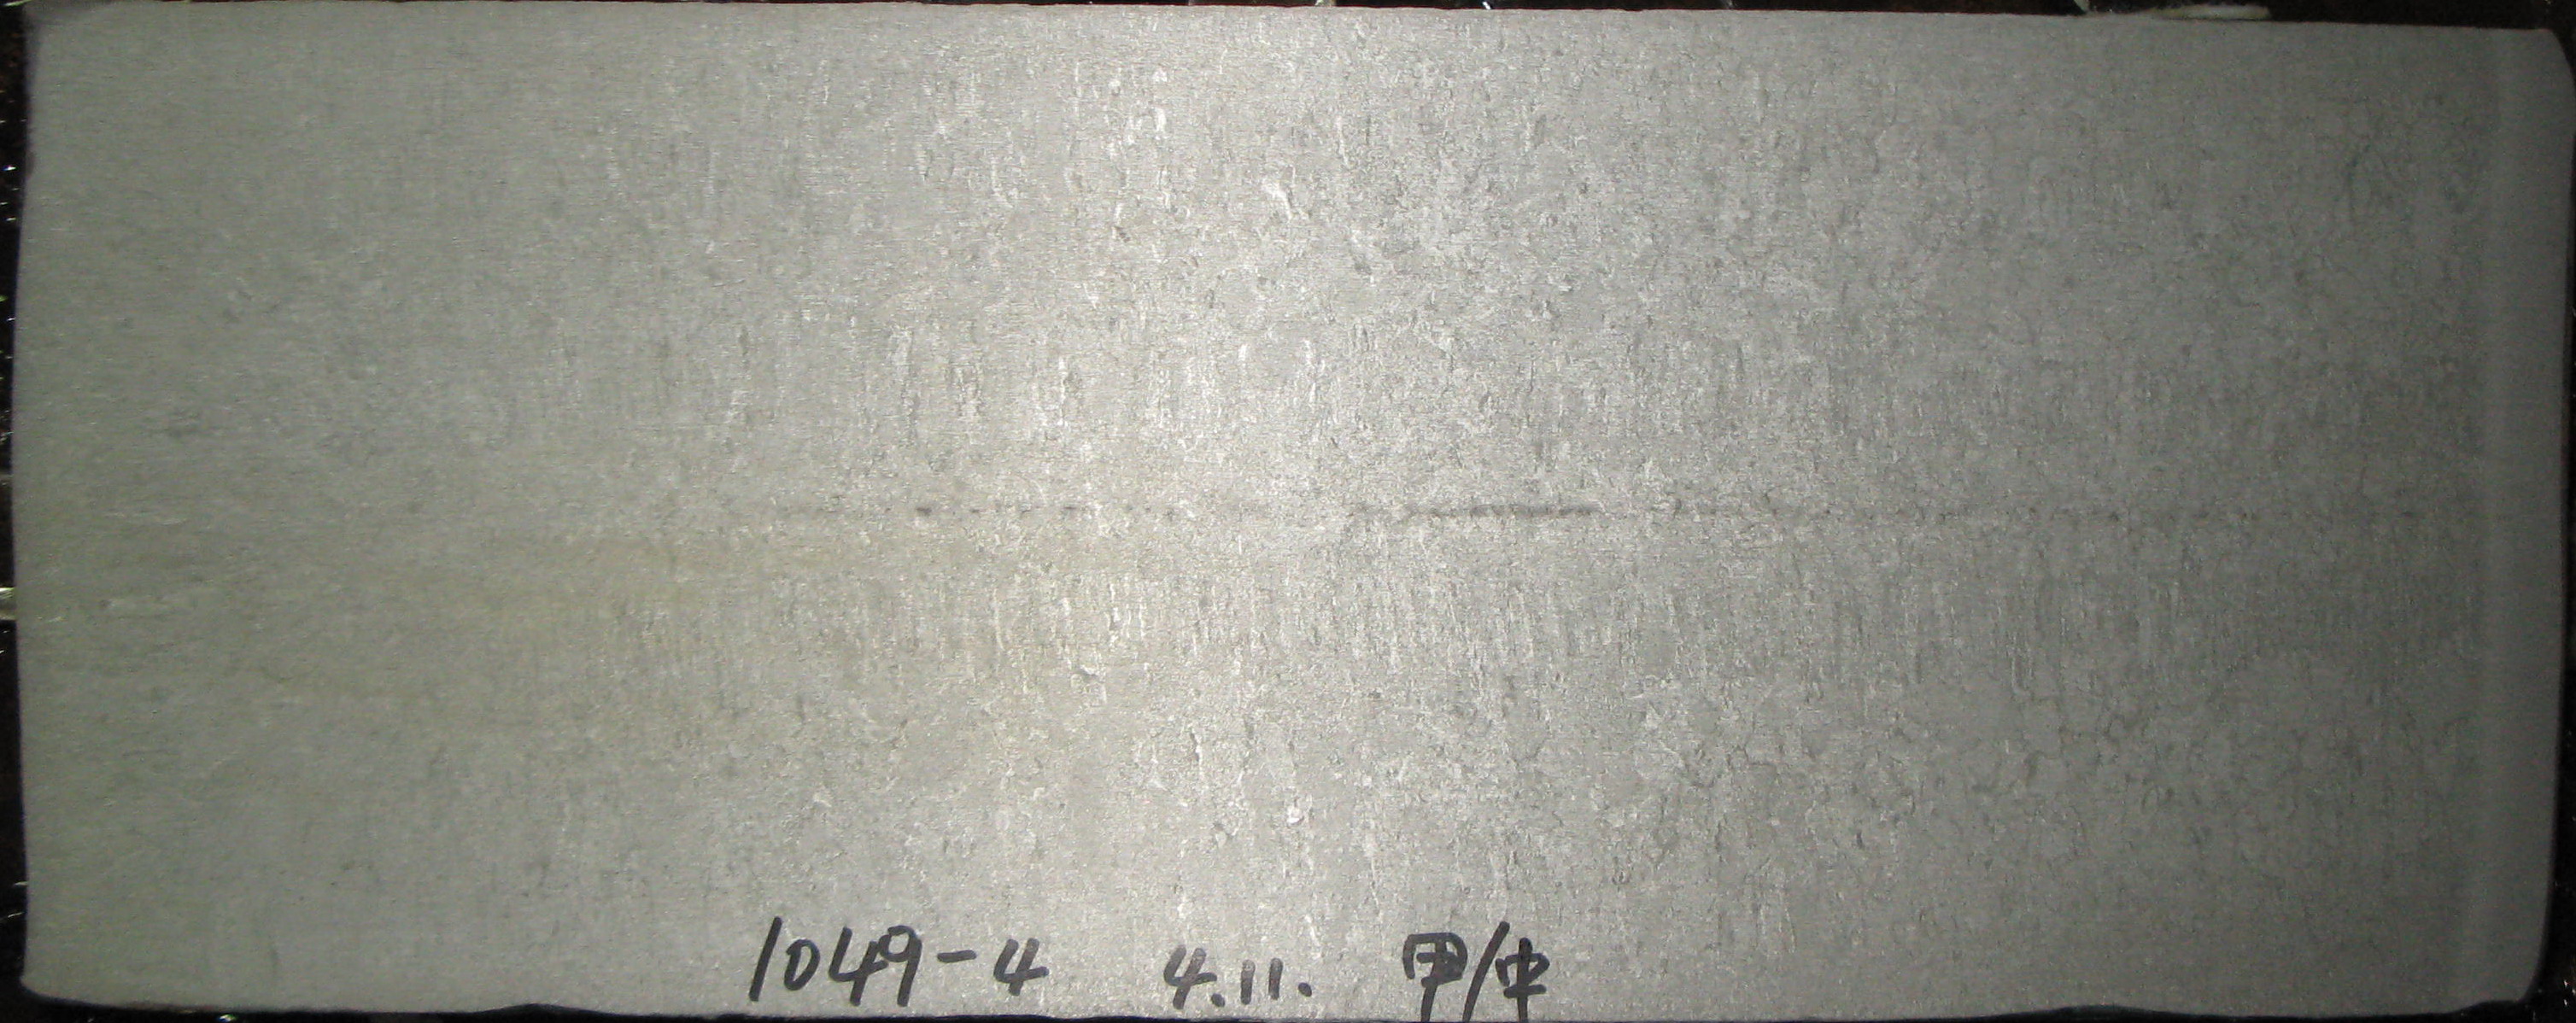 1049-4 4.11. 甲/中